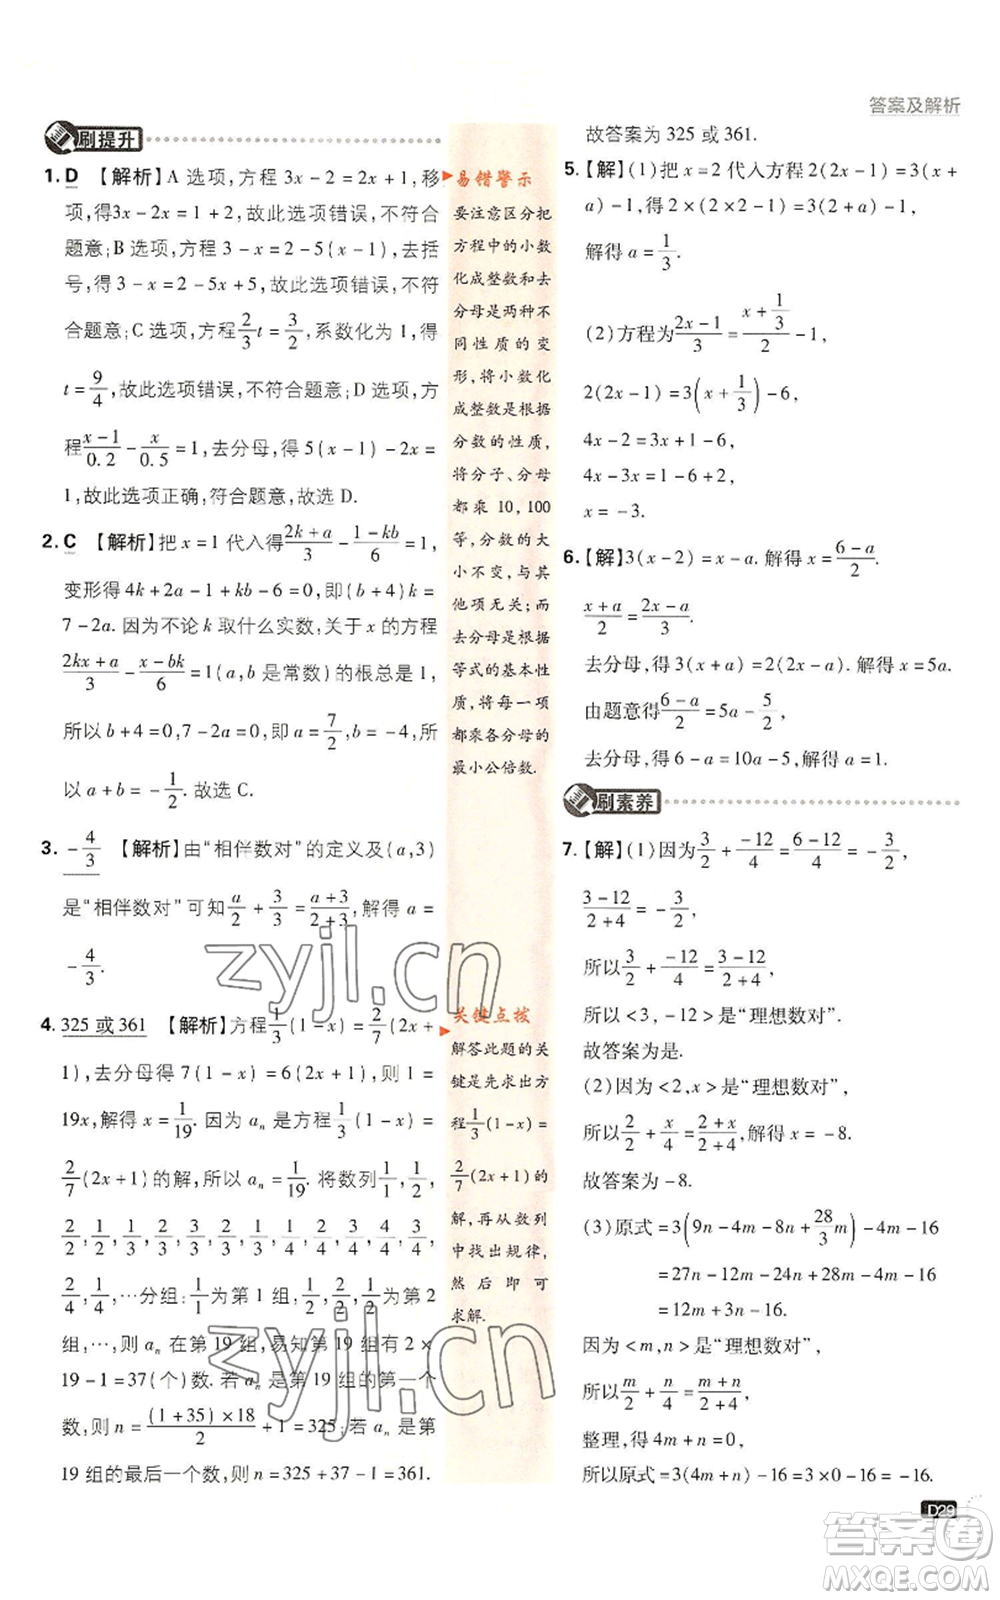 答案及解析
刷提升
1. D 【解析】A 选项,方程 3x-2=2x+1,移
项,得3x-2x=1+2,故此选项错误,不符合
题意;B 选项,方程 3-x=2-5(x-1),去括
号,得 3-x=2-5x+5,故此选项错误,不符
合题意;C 选项,方程 2/3 t = 3/2,系数化为 1,得
t = 9/4,故此选项错误,不符合题意;D 选项,方
程 (x-1)/0.2 - x/0.5 = 1,去分母,得 5(x-1)-2x=
1,故此选项正确,符合题意,故选 D.
2. C 【解析】把 x=1 代入得 (2k+a)/3 - (1-kb)/6 = 1,
变形得 4k+2a-1+kb-6=0,即(b+4)k=
7-2a. 因为不论 k 取什么实数,关于 x 的方程
(2kx+a)/3 - (x-bk)/6 = 1(a,b 是常数)的根总是 1,
所以 b+4=0,7-2a=0,即 a = 7/2, b=-4,所
以 a+b = -1/2. 故选 C.
3. -4/3 【解析】由“相伴数对”的定义及(a,3)
是“相伴数对”可知 a/2 + 3/3 = (a+3)/(2+3),解得 a =
-4/3.
4. 325 或 361 【解析】方程 1/3 (1-x) = 2/7 (2x+
1),去分母得 7(1-x)=6(2x+1),解得 1=
19x,解得 x = 1/19. 因为 aₙ 是方程 1/3 (1-x) =
2/7 (2x+1)的解,所以 aₙ = 1/19. 将数列 1/1, 1/2,
2/2, 2/1, 1/3, 2/3, 3/3, 1/4, 2/4, 3/4, 4/4, 3/4,
2/4, 1/4,…分组: 1/1 为第 1 组, 1/2, 2/2 为第 2
组,…,则 aₙ 在第 19 组,易知第 19 组有 2×
19-1=37(个)数. 若 aₙ 是第 19 组的第一个
数,则 n = (1+35)×18/2 + 1 = 325;若 aₙ 是第
19 组的最后一个数,则 n=325+37-1=361.
易错警示
要注意区分把
方程中的小数
化成整数和去
分母是两种不
同性质的变
形,将小数化
成整数是根据
分数的性质,
将分子、分母
都乘 10,100
等,分数的大
小不变,与其
他项无关;而
去分母是根据
等式的基本性
质,将每一项
都乘各分母的
最小公倍数.
关键点拨
解答此题的关
键是先求出方
程 1/3 (1-x) =
2/7 (2x+1)的
解,再从数列
中找出规律,
然后即可
求解.
故答案为 325 或 361.
5. 【解】(1)把 x=2 代入方程 2(2x-1)=3(x+
a)-1,得 2×(2×2-1)=3(2+a)-1,
解得 a = 1/3.
(2)方程为 (2x-1)/3 = (x+1/3)/2 - 1,
2(2x-1)=3(x+1/3)-6,
4x-2=3x+1-6,
4x-3x=1-6+2,
x=-3.
6. 【解】3(x-2)=x-a. 解得 x = (6-a)/2.
(x+a)/2 = (2x-a)/3.
去分母,得 3(x+a)=2(2x-a). 解得 x=5a.
由题意得 (6-a)/2 = 5a - 5/2,
去分母,得 6-a=10a-5,解得 a=1.
刷素养
7. 【解】(1)因为 3/2 + (-12)/4 = (6-12)/4 = -3/2,
(3-12)/(2+4) = -3/2,
所以 3/2 + (-12)/4 = (3-12)/(2+4),
所以<3,-12>是“理想数对”.
故答案是.
(2)因为<2,x>是“理想数对”,
所以 2/2 + x/4 = (2+x)/(2+4),解得 x=-8.
故答案为 -8.
(3)原式=3(9n-4m-8n+28/3 m)-4m-16
=27n-12m-24n+28m-4m-16
=12m+3n-16.
因为<m,n>是“理想数对”,
所以 m/2 + n/4 = (m+n)/(2+4),
整理,得 4m+n=0.
所以原式=3(4m+n)-16=3×0-16=-16.
D29
zyjl.cn
zyjl.cn
答案圈
MXQE.COM